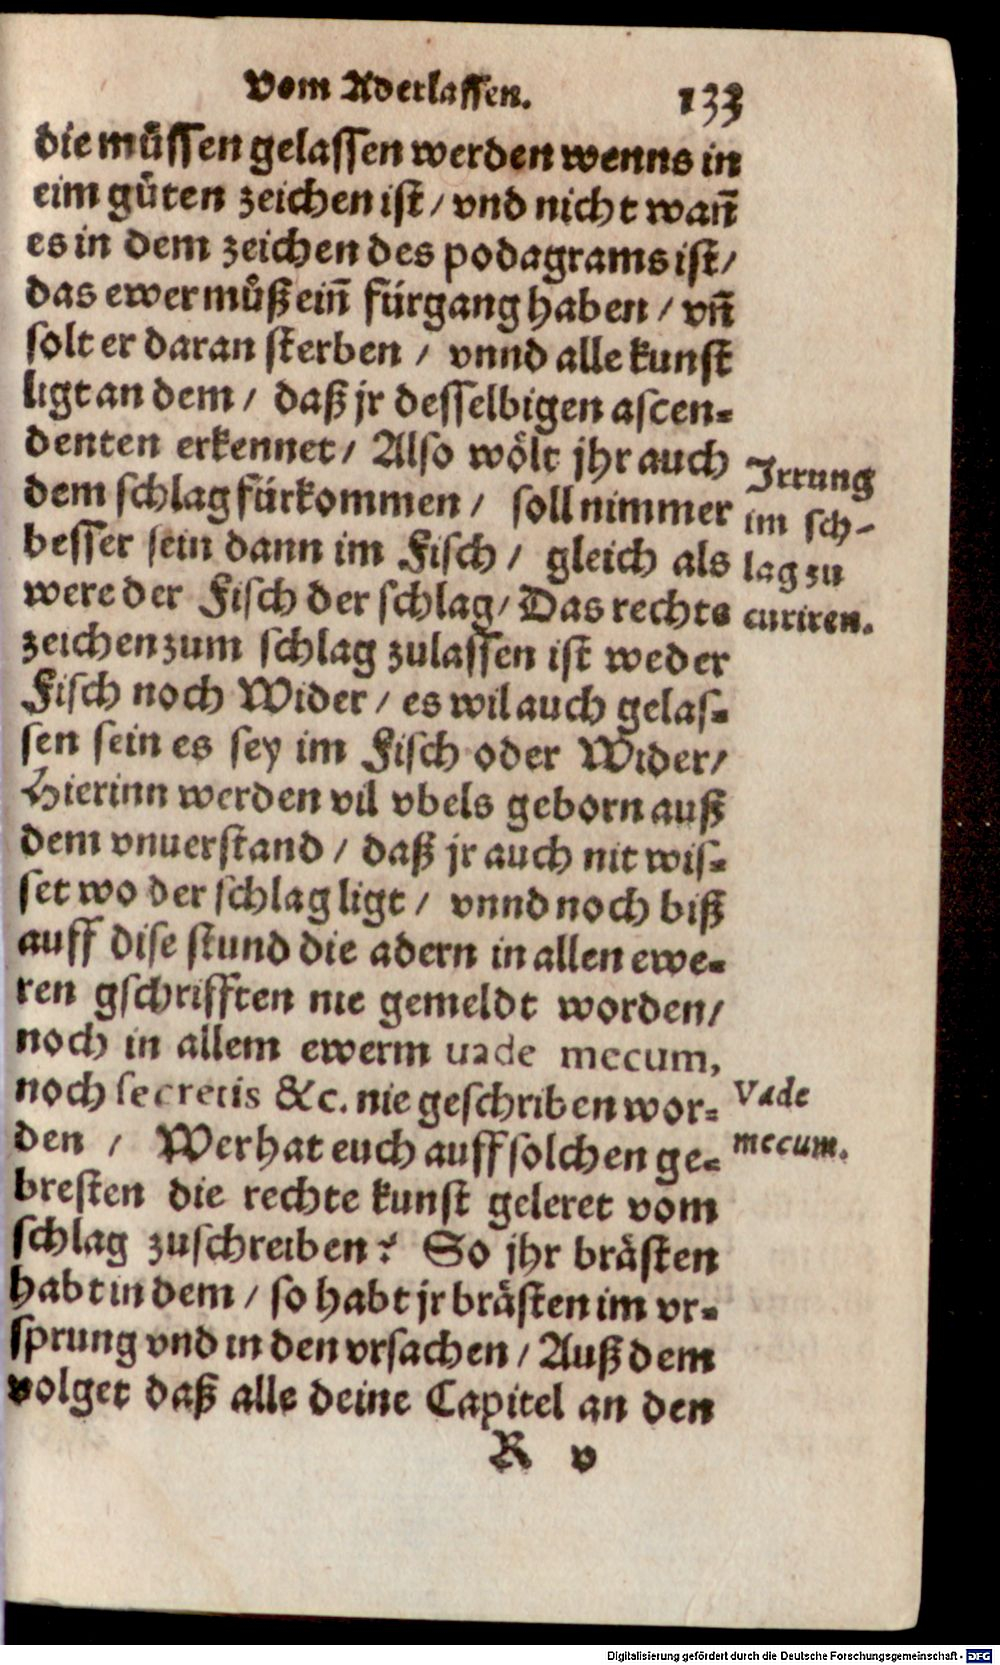 Vom Aderlassen. 133
die müssen gelassen werden wenns in
eim gůten zeichen ist / vnd nicht wañ
es in dem zeichen des podagrams ist /
das ewer můß eiñ fürgang haben / vñ
solt er daran sterben / vnnd alle kunst
ligt an dem / daß jr desselbigen ascen-
denten erkennet / Also wölt jhr auch
dem schlag fürkommen / soll nimmer
besser sein dann im Fisch / gleich als
were der Fisch der schlag / Das rechte
zeichen zum schlag zulassen ist weder
Fisch noch Wider / es wil auch gelas-
sen sein es sey im Fisch oder Wider /
Hierinn werden vil vbels geborn auß
dem vnuerstand / daß jr auch nit wis-
set wo der schlag ligt / vnnd noch biß
auff dise stund die adern in allen ewe-
ren gschrifften nie gemeldt worden /
noch in allem ewerm uade mecum,
noch secretis &c. nie geschriben wor-
den / Wer hat euch auff solchen ge-
bresten die rechte kunst geleret vom
schlag zuschreiben? So jhr brästen
habt in dem / so habt jr brästen im vr-
sprung vnd in den vrsachen / Auß dem
volget daß alle deine Capitel an den
R v
Irrung
im sch-
lag zu
curiren.
Vade
mecum.
Digitalisierung gefördert durch die Deutsche Forschungsgemeinschaft - DFG